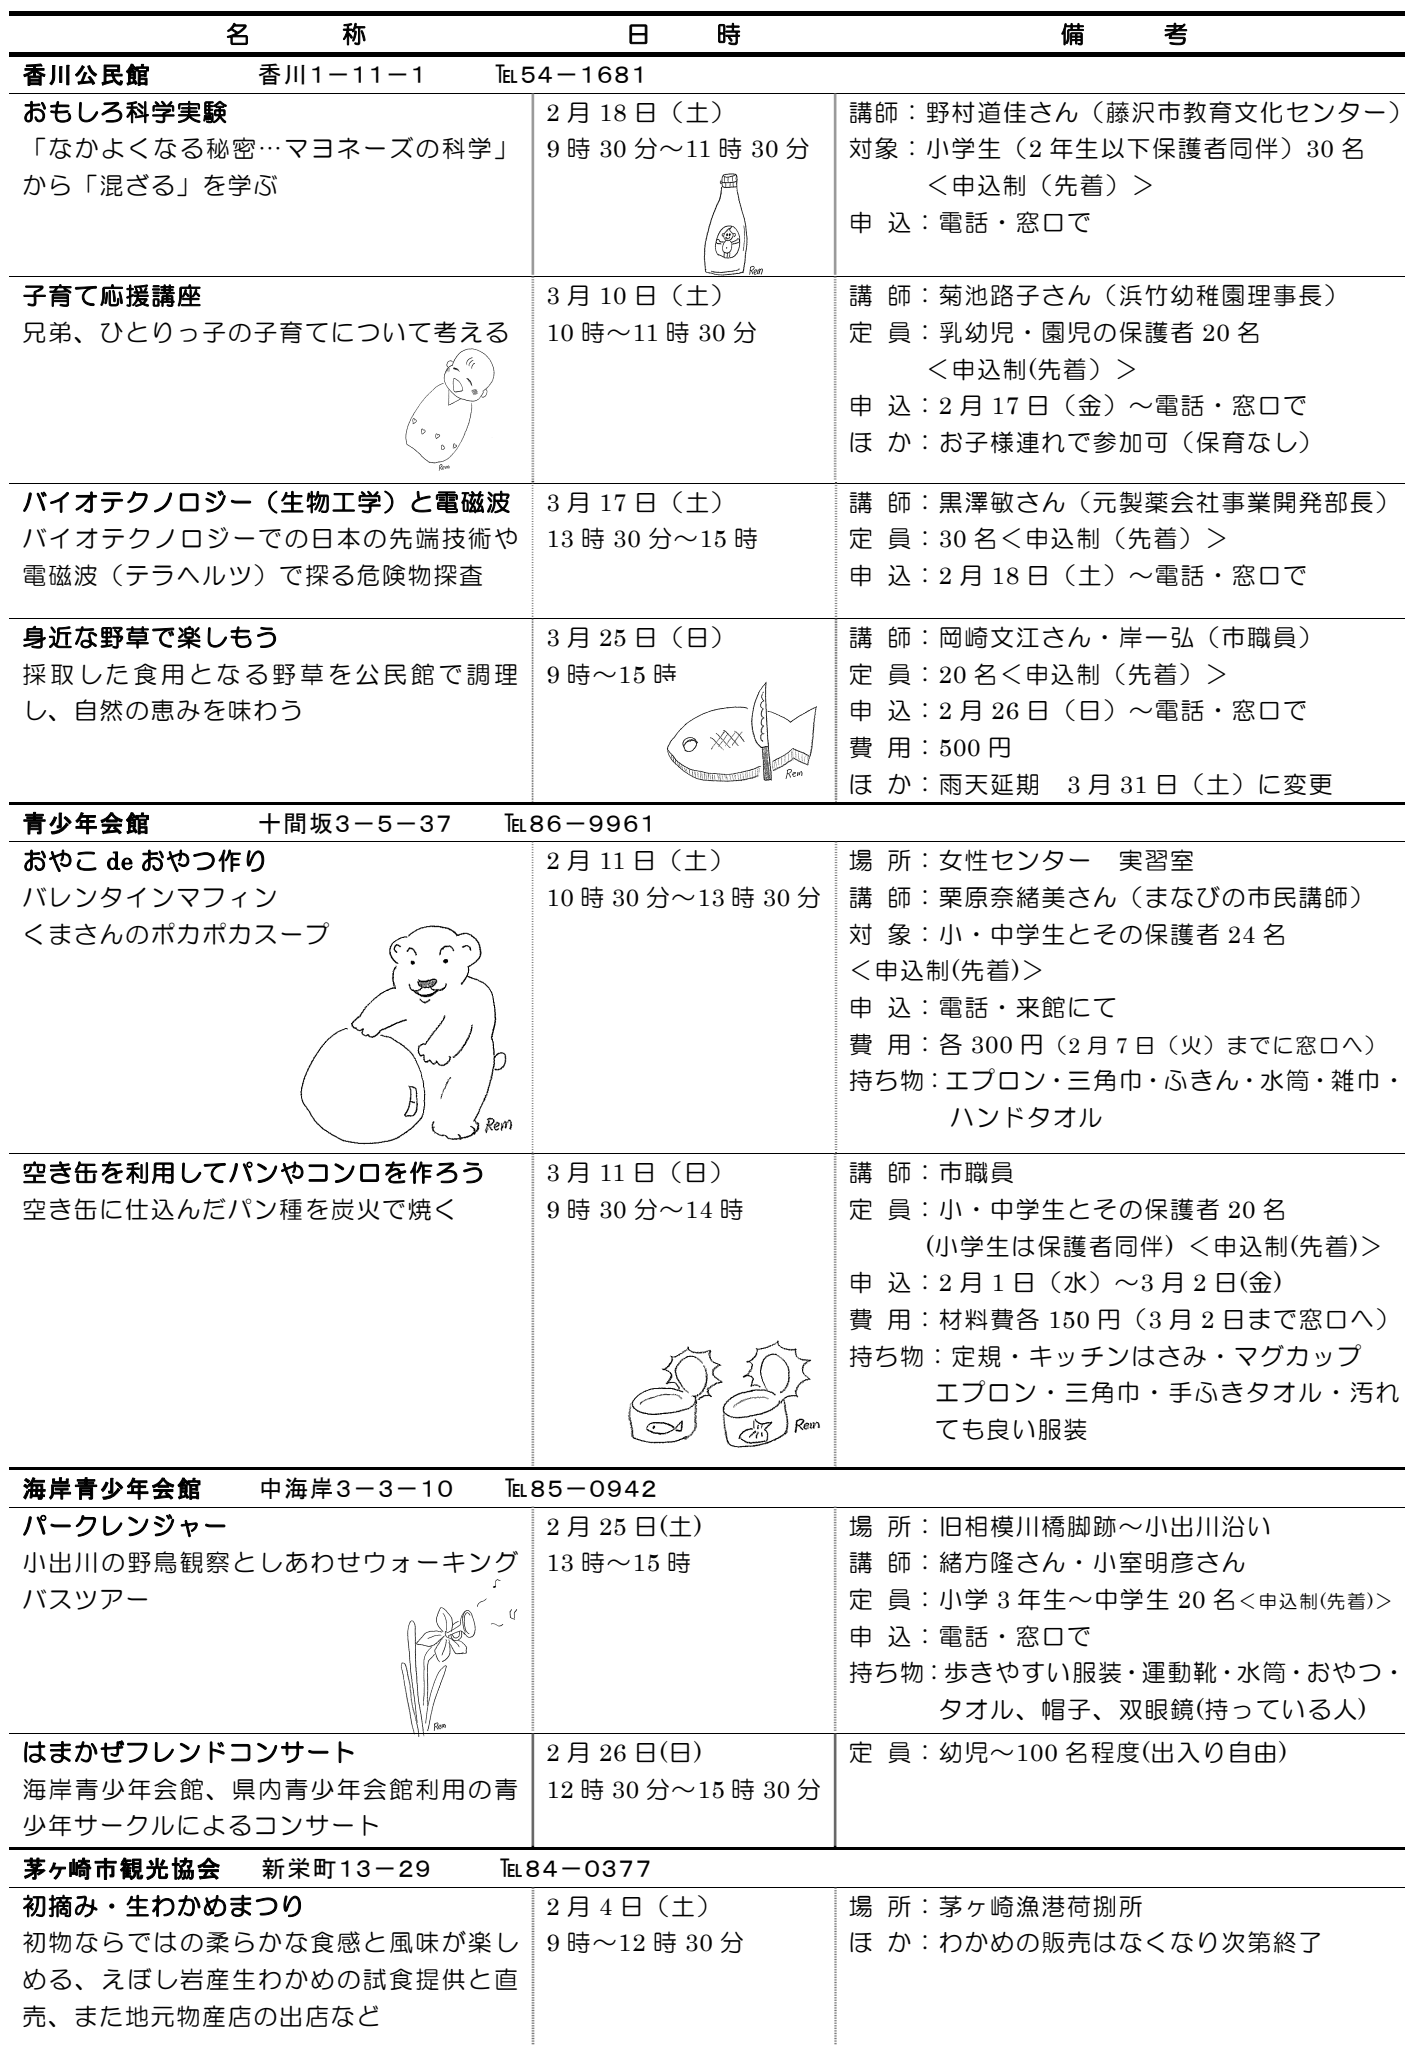 名　称　日　時　備　考
香川公民館　香川1－11－1　℡54－1681
おもしろ科学実験
「なかよくなる秘密…マヨネーズの科学」
から「混ざる」を学ぶ
2月18日（土）
9時30分～11時30分
Rem
講師：野村道佳さん（藤沢市教育文化センター）
対象：小学生（2年生以下保護者同伴）30名
＜申込制（先着）＞
申 込：電話・窓口で
子育て応援講座
兄弟、ひとりっ子の子育てについて考える
Rem
3月10日（土）
10時～11時30分
講 師：菊池路子さん（浜竹幼稚園理事長）
定 員：乳幼児・園児の保護者20名
＜申込制(先着）＞
申 込：2月17日（金）～電話・窓口で
ほ か：お子様連れで参加可（保育なし）
バイオテクノロジー（生物工学）と電磁波
バイオテクノロジーでの日本の先端技術や
電磁波（テラヘルツ）で探る危険物探査
3月17日（土）
13時30分～15時
講 師：黒澤敏さん（元製薬会社事業開発部長）
定 員：30名＜申込制（先着）＞
申 込：2月18日（土）～電話・窓口で
身近な野草で楽しもう
採取した食用となる野草を公民館で調理
し、自然の恵みを味わう
3月25日（日）
9時～15時
Rem
講 師：岡崎文江さん・岸一弘（市職員）
定 員：20名＜申込制（先着）＞
申 込：2月26日（日）～電話・窓口で
費 用：500円
ほ か：雨天延期　3月31日（土）に変更
青少年会館　十間坂3－5－37　℡86－9961
おやこ de おやつ作り
バレンタインマフィン
くまさんのポカポカスープ
Rem
2月11日（土）
10時30分～13時30分
場 所：女性センター　実習室
講 師：栗原奈緒美さん（まなびの市民講師）
対 象：小・中学生とその保護者24名
＜申込制(先着)＞
申 込：電話・来館にて
費 用：各300円（2月7日（火）までに窓口へ）
持ち物：エプロン・三角巾・ふきん・水筒・雑巾・
ハンドタオル
空き缶を利用してパンやコンロを作ろう
空き缶に仕込んだパン種を炭火で焼く
3月11日（日）
9時30分～14時
Rem
講 師：市職員
定 員：小・中学生とその保護者20名
(小学生は保護者同伴) ＜申込制(先着)＞
申 込：2月1日（水）～3月2日(金)
費 用：材料費各150円（3月2日まで窓口へ）
持ち物：定規・キッチンはさみ・マグカップ
エプロン・三角巾・手ふきタオル・汚れ
ても良い服装
海岸青少年会館　中海岸3－3－10　℡85－0942
パークレンジャー
小出川の野鳥観察としあわせウォーキング
バスツアー
Rem
2月25日(土)
13時～15時
場 所：旧相模川橋脚跡～小出川沿い
講 師：緒方隆さん・小室明彦さん
定 員：小学3年生～中学生20名＜申込制(先着)＞
申 込：電話・窓口で
持ち物：歩きやすい服装・運動靴・水筒・おやつ・
タオル、帽子、双眼鏡(持っている人)
はまかぜフレンドコンサート
海岸青少年会館、県内青少年会館利用の青
少年サークルによるコンサート
2月26日(日)
12時30分～15時30分
定 員：幼児～100名程度(出入り自由)
茅ヶ崎市観光協会　新栄町13－29　℡84－0377
初摘み・生わかめまつり
初物ならではの柔らかな食感と風味が楽し
める、えぼし岩産生わかめの試食提供と直
売、また地元物産店の出店など
2月4日（土）
9時～12時30分
場 所：茅ヶ崎漁港荷捌所
ほ か：わかめの販売はなくなり次第終了